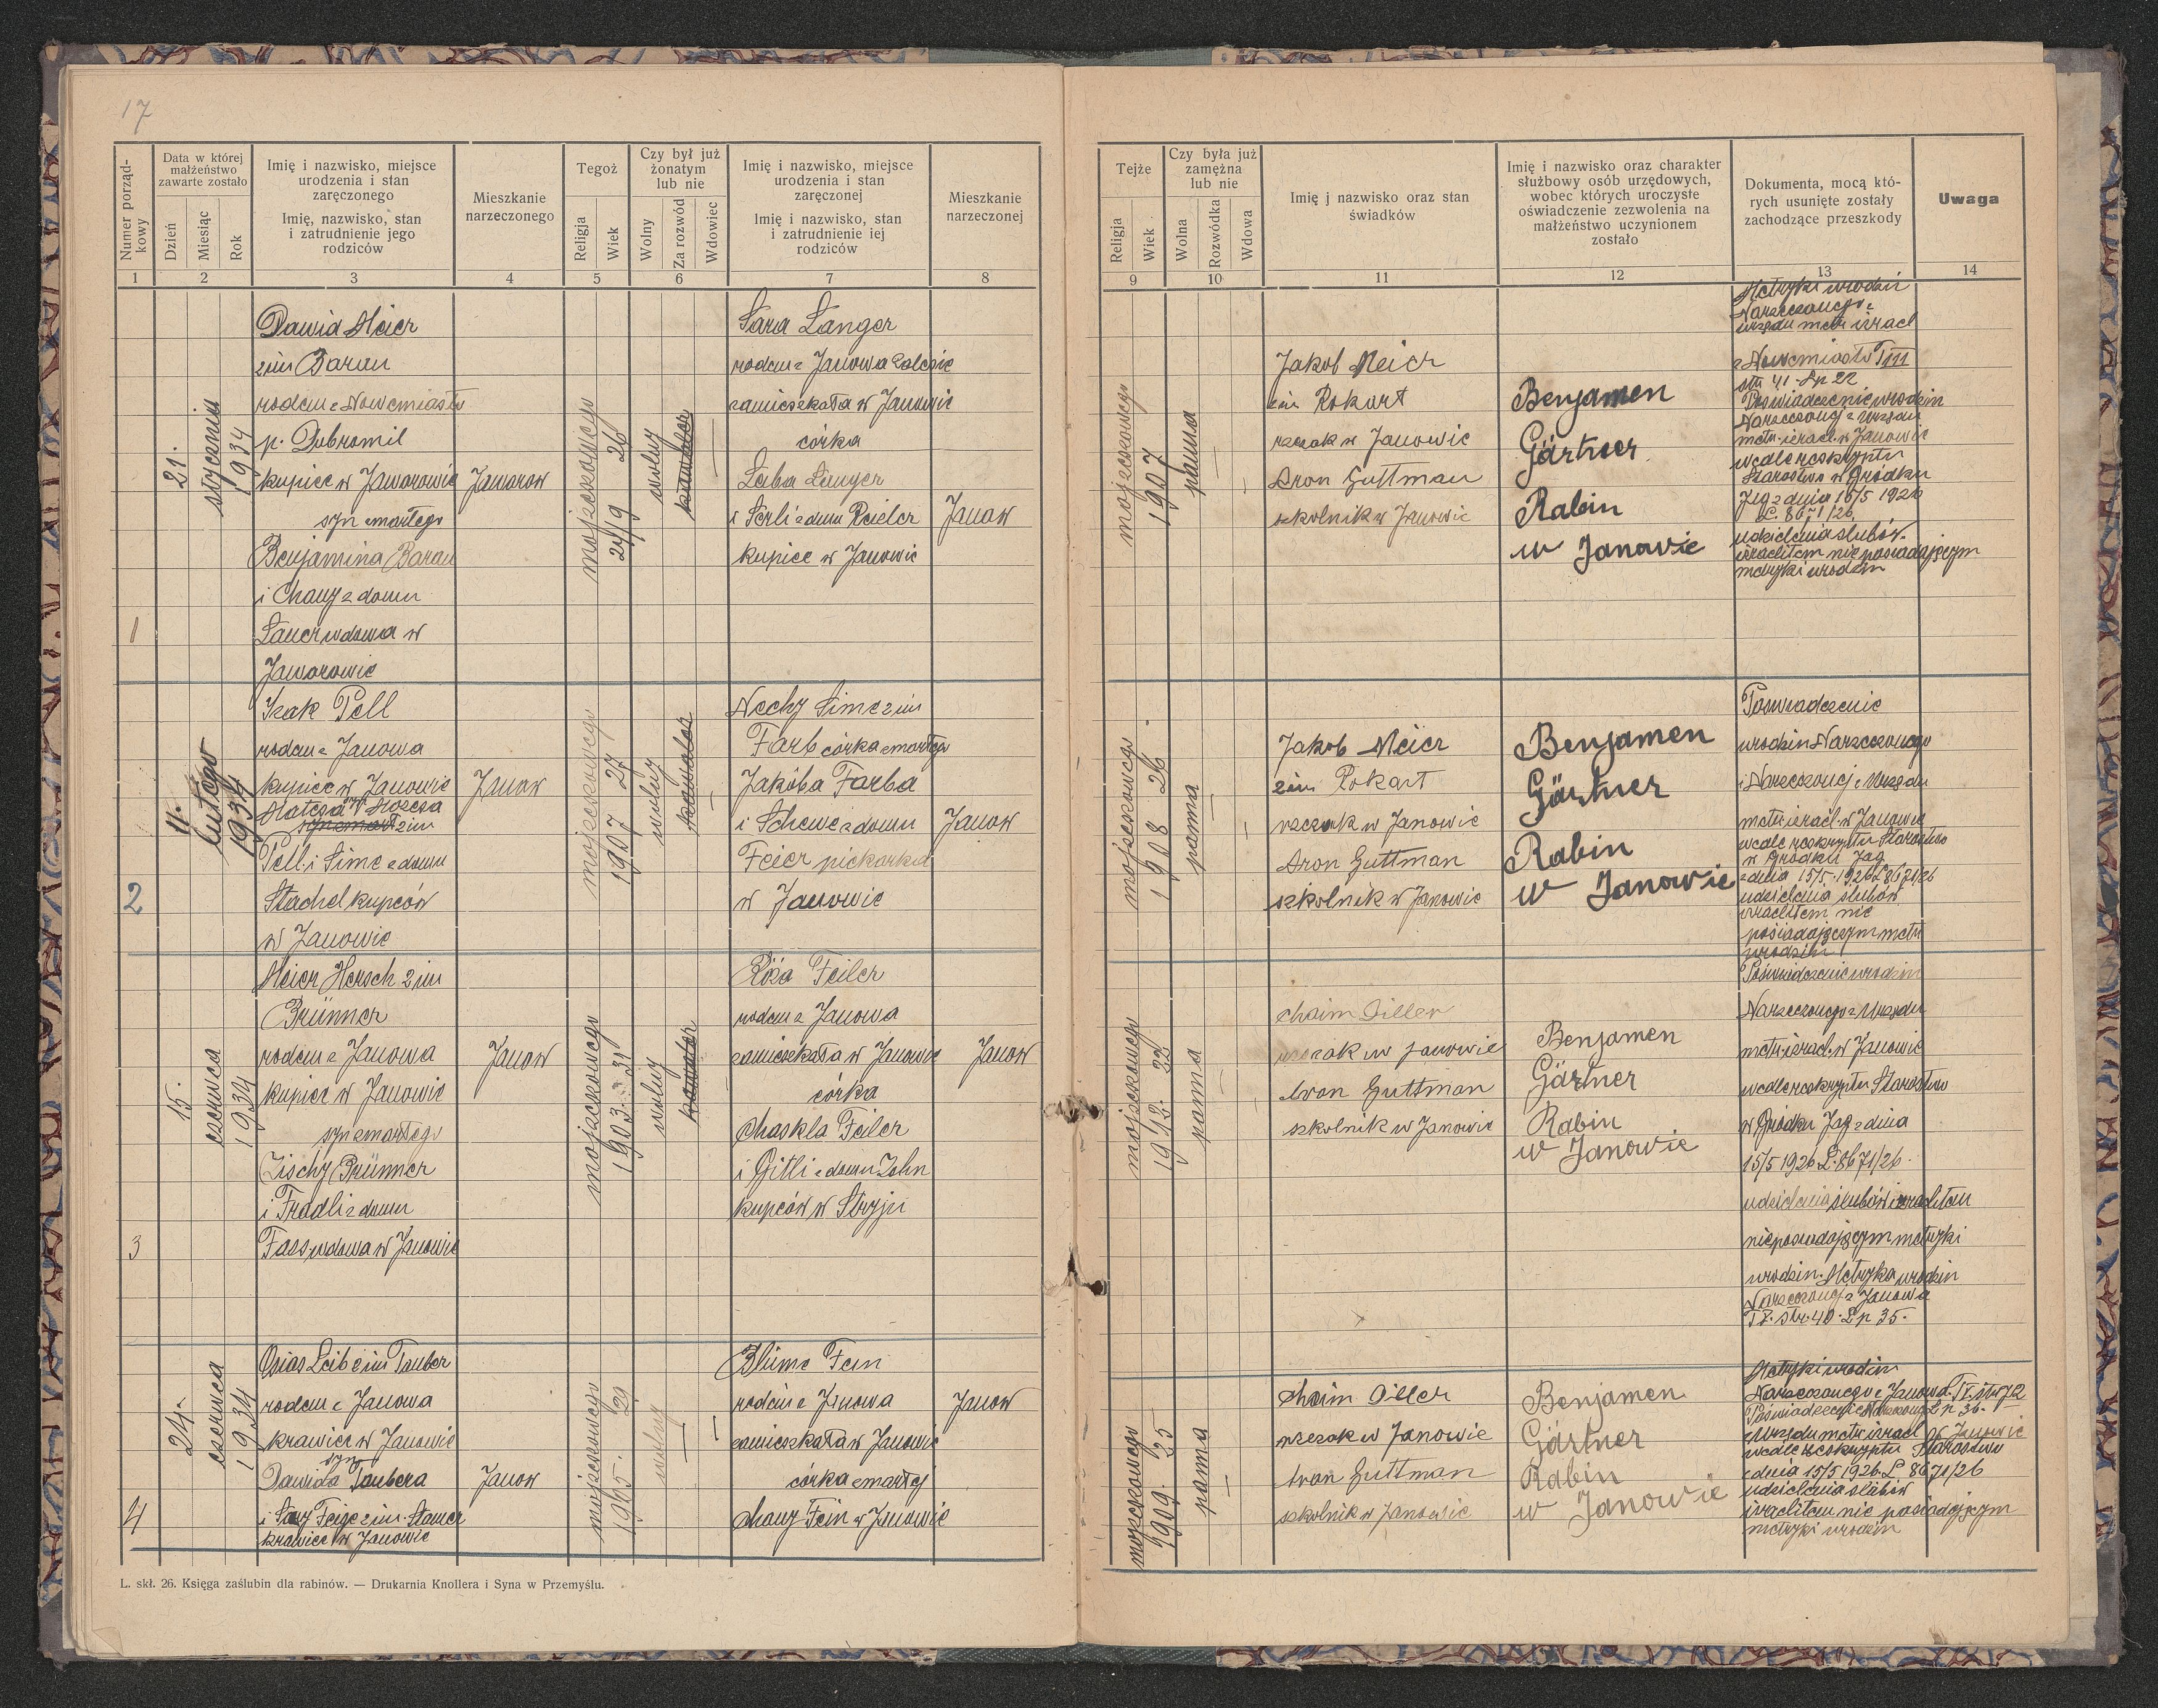 17
Numer porząd-
kowy
Data w której
małżeństwo
zawarte zostało
Dzień
Miesiąc
Rok
Imię i nazwisko, miejsce
urodzenia i stan
zaręczonego
Imię, nazwisko, stan
i zatrudnienie jego
rodziców
Mieszkanie
narzeczonego
Tegoż
Religja
Wiek
Czy był już
żonatym
lub nie
Wolny
Za rozwód
Wdowiec
Imię i nazwisko, miejsce
urodzenia i stan
zaręczonej
Imię i nazwisko, stan
i zatrudnienie iej
rodziców
Mieszkanie
narzeczonej
1
2
3
4
5
6
7
8
Tejże
Religja
Wiek
Czy była już
zamężna
lub nie
Wolna
Rozwódka
Wdowa
Imię j nazwisko oraz stan
świadków
Imię i nazwisko oraz charakter
służbowy osób urzędowych,
wobec których uroczyste
oświadczenie zezwolenia na
małżeństwo uczynionem
zostało
Dokumenta, mocą któ-
rych usunięte zostały
zachodzące przeszkody
Uwaga
9
10
11
12
13
14
1
21.
stycznia
1934
Dawid Meier
zim Barau
rodem z Nowemiasto
p. Dobromil
kupiec w Jaworowie
syn zmarłego
Benjamina Barau
i Chany z domu
Lauer wdowa w
Jaworowie
Jaworow
mojzeszowego
24/9 26
wolny
kawaler
Sara Langer
rodem z Janowa Zalesie
zamieszkała w Janowie
córka
Leiba Langer
i Serli z domu Reieler
kupiec w Janowie
Janow
mojzeszowego
1907
panna
Jakob Meier
zim Rokart
rzezak w Janowie
Aron Guttman
szkolnik w Janowie
Benjamen
Gärtner
Rabin
w Janowie
Metryki urodzin
Narzeczonego z
urzędu metr israel
z Nowemiasto T III
str 41 Lp 22
Poswiadczenie urodzin
Narzeczonej z Urzędu
metr. izrael. w Janowie
wedle reskryptu
Starostwo w Gródku
Jag z dnia 15/5 1926
L. 8671/26
udzielania slubów
izraelitom nie posiadającym
metryki urodzin
2
11.
lutego
1934
Izak Pell
rodem z Janowa
kupiec w Janowie
Matesa v. Mozesa
syn zmarł zim
Pell i Sime z domu
Stachel kupców
w Janowie
Janow
mojzeszowego
1907 27
wolny
kawaler
Nechy Sime zim
Farb córka zmarłego
Jakóba Farba
i Schewe z domu
Feier piekarka
w Janowie
Janow
mojzeszowego
1908 26
panna
Jakob Meier
zim Rokart
rzezak w Janowie
Aron Guttman
szkolnik w Janowie
Benjamen
Gärtner
Rabin
w Janowie
Poswiadczenie
urodzin Narzeczonego
i Narzeczonej z Urzędu
metr. izrael. w Janowie
wedle reskryptu Starostwo
w Gródku Jag
z dnia 15/5. 1926 L 8671/26
udzielania ślubów
izraelitom nie
posiadającym metr
urodzin
3
15.
czerwca
1934
Meier Hersch zim
Brünner
rodem z Janowa
kupiec w Janowie
syn zmarłego
Zischy Brünner
i Fradli z domu
Fass wdowa w Janowie
Janow
mojzeszowego
1903. 31
wolny
kawaler
Róża Feiler
rodem z Janowa
zamieszkała w Janowie
córka
Chaskla Feiler
i Gitli z domu Zohn
kupców w Stryju
Janow
mojzeszowego
1912. 22
panna
Chaim Diller
rzezak w Janowie
Aron Guttman
szkolnik w Janowie
Benjamen
Gärtner
Rabin
w Janowie
Poświadczenie urodzin
Narzeczonego z Urzędu
metr. izrael. w Janowie
wedle reskryptu Starostwo
w Gródku Jag z dnia
15/5 1926 L. 8671/26.
udzielania ślubów izraelitom
nieposiadającym metryki
urodzin. Metryka urodzin
Narzeczonej z Janowa
str. 40. Lp 35.
4
24.
czerwca
1934
Osias Leib zim Tauber
rodem z Janowa
krawiec w Janowie
syn
Dawida Taubera
i Sary Feige zim. Stamer
krawiec w Janowie
Janow
mojzeszowego
1905. 29
wolny
Blüme Fein
rodem z Janowa
zamieszkała w Janowie
córka zmarłej
Chany Fein w Janowie
Janow
mojzeszowego
1909. 25
panna
Chaim Diller
rzezak w Janowie
Aron Guttman
szkolnik w Janowie
Benjamen
Gärtner
Rabin
w Janowie
Metryki urodzin
Narzeczonego z Janowa. str 72
Poświadczenie Narzeczonej Lp 36.
z Urzędu metr. izrael w Janowie
wedle reskryptu Starostwo
z dnia 15/5 1926. L. 8671/26
udzielania ślubów
izraelitom nie posiadającym
metryki urodzin
L. skł. 26. Księga zaślubin dla rabinów. — Drukarnia Knollera i Syna w Przemyślu.